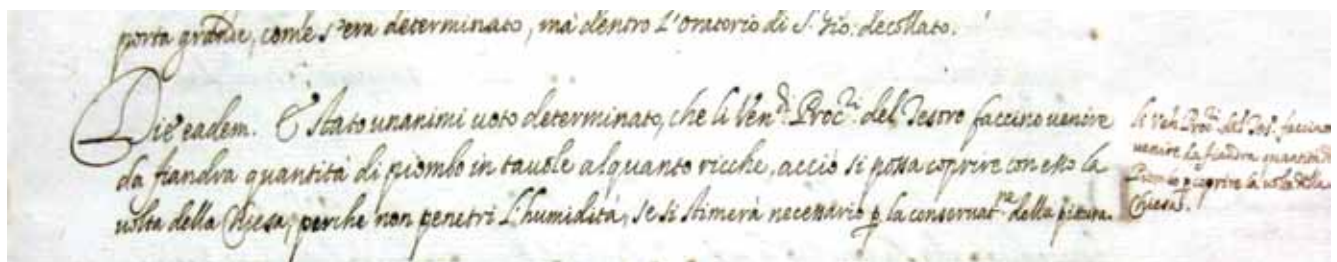 porta grande, come s'era determinato, mà dentro L'oratorio di S. Gio: decollato.
Die eadem. È stato unanimi voto determinato, che li Ven.di Proc.ri del Tesoro faccino venire
da fiandra quantità di piombo in tavole alquanto ricche, acciò si possa coprire con esso la
volta della Chiesa, perche non penetri L'humidità, se si stimerà necessario p la conservat.ne della pittura.
li Ven. Proc.ri del Tes. faccino
venire da fiandra quantità di
Piombo p coprire la volta della
Chiesa.